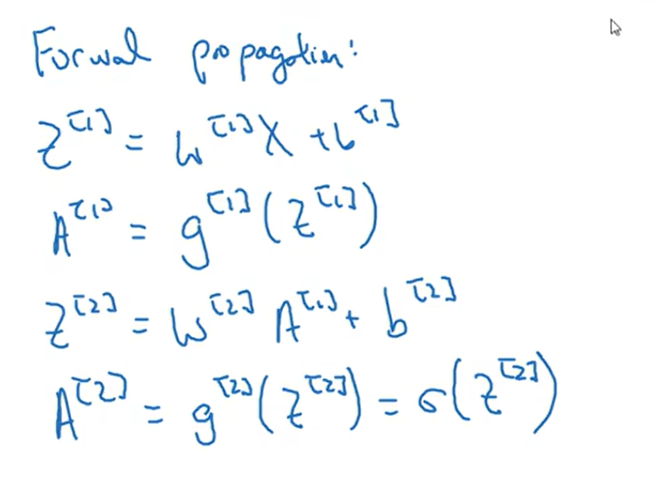 Forwal propagation:
Z^[1] = W^[1] X + b^[1]
A^[1] = g^[1](Z^[1])
Z^[2] = W^[2] A^[1] + b^[2]
A^[2] = g^[2](Z^[2]) = σ(Z^[2])